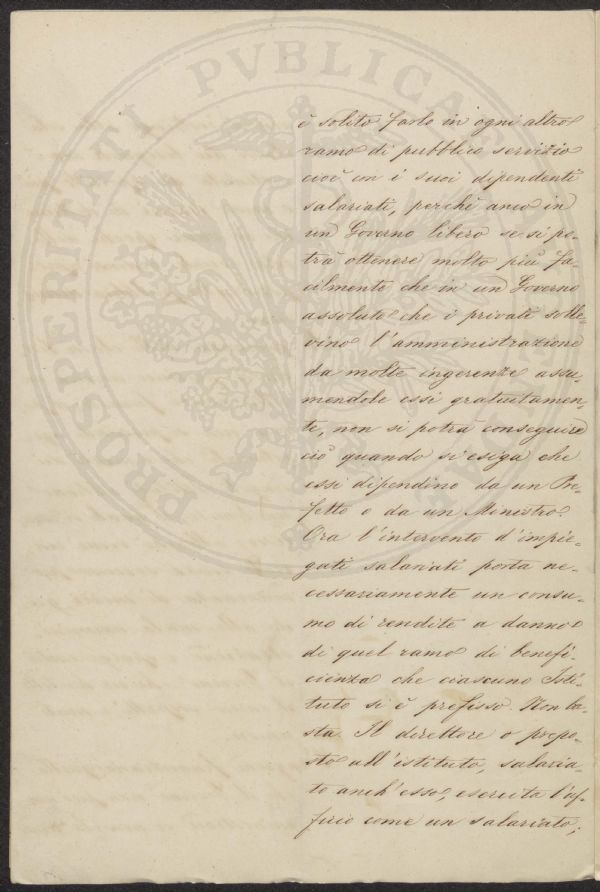 è solito farlo in ogni altro
ramo di pubblico servizio
cioè con i suoi dipendenti
salariati, perchè anco in
un Governo libero se si po-
trà ottenere molto più fa-
cilmente che in un Governo
assoluto che i privati solle-
vino l'amministrazione
da molte ingerenze assu-
mendole essi gratuitamen-
te, non si potrà conseguire
ciò quando si esiga che
essi dipendino da un Pre-
fetto o da un Ministro.
Ora l'intervento d'impie-
gati salariati porta ne-
cessariamente un consu-
mo di rendite a danno
di quel ramo di benefi-
cienza che ciascuno Isti-
tuto si è prefisso. Non ba-
sta. Il direttore o prepo-
sto all'istituto, salaria-
to anch'esso, esercita l'uf-
ficio come un salariato;
PROSPERITATI PVBLICAE